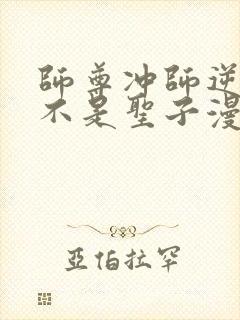 師尊冲師逆
不是聖子漫
亞伯拉罕